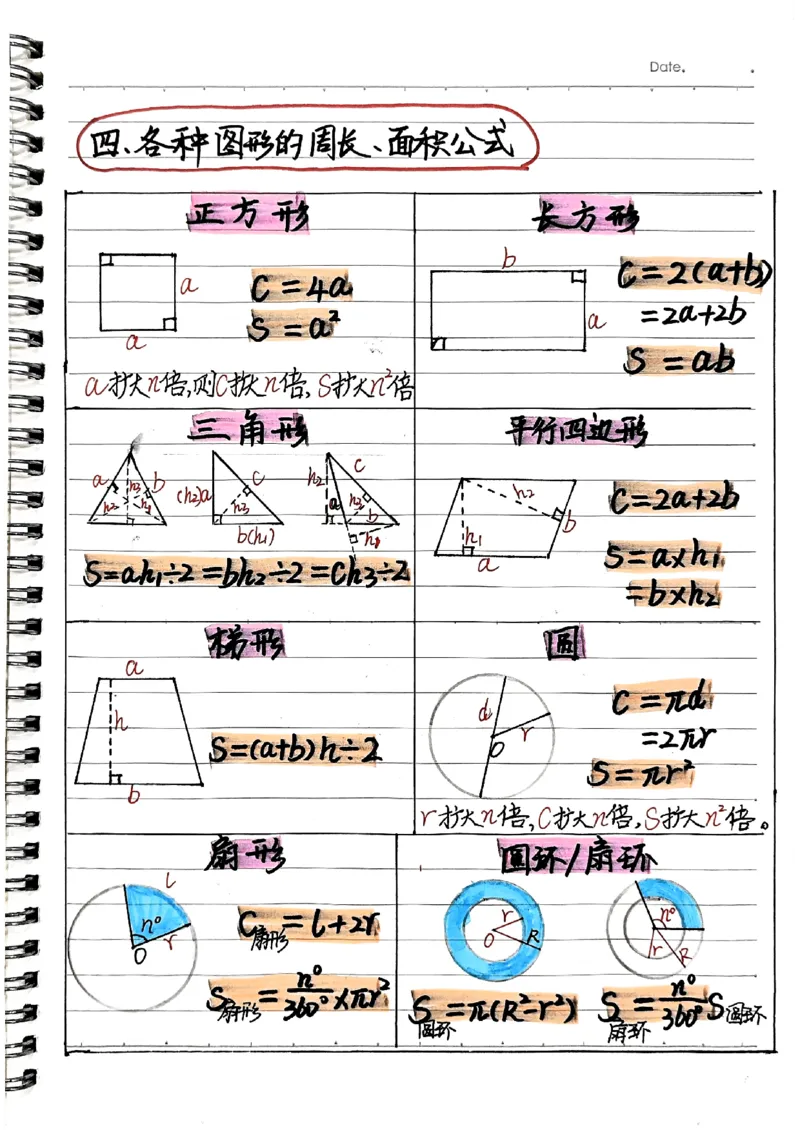 Date.
四、各种图形的周长、面积公式
正方形
a
a
C = 4a
S = a²
a扩大n倍,则C扩大n倍,S扩大n²倍
长方形
b
a
C = 2(a+b)
= 2a+2b
S = ab
三角形
a h₃ b
h₂ h₁
(h₂)a c
h₃
b(h₁)
h₂ c
a h₃
b
h₁
S=ah₁÷2=bh₂÷2=ch₃÷2
平行四边形
h₂
h₁ b
a
C=2a+2b
S=a×h₁
=b×h₂
梯形
a
h
b
S=(a+b)h÷2
圆
d
r
O
C = πd
=2πr
S = πr²
r扩大n倍,C扩大n倍,S扩大n²倍。
扇形
l
n°
r
O
C扇形 = l+2r
S扇形 = n°/360° ×πr²
圆环/扇环
r
O R
n°
r R
S圆环 = π(R²-r²)
S扇环 = n°/360° S圆环